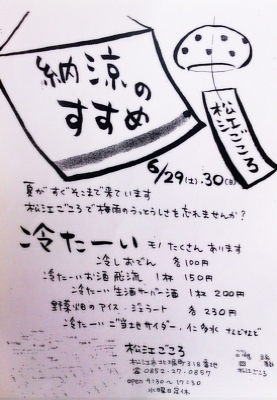 納涼の
すすめ
松江ごころ
6/29(土).30(日)
夏がすぐそこまで来ています
松江ごころで梅雨のうっとうしさを忘れませんか？
冷たーいモノたくさんあります
冷しおでん 各100円
冷たーいお酒 1杯 150円
冷たーい生酒サーバー酒 1杯 200円
野菜畑のアイス・ジェラート 各230円
冷たーいご当地サイダー、仁多水 などなど
松江ごころ
松江市北堀町318番地
☎0852-27-0857
open 9:30〜17:30
水曜日定休
松江ごころ